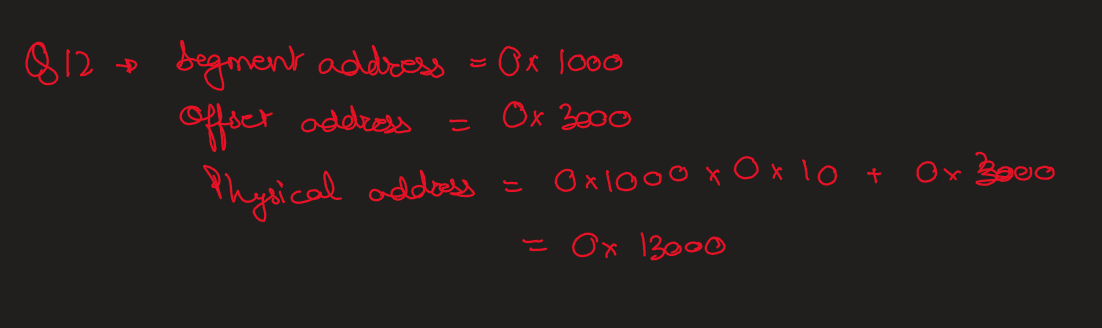 Q12 → Segment address = 0x 1000
Offset address = 0x 3000
Physical address = 0x1000 x 0x10 + 0x 3000
= 0x 13000